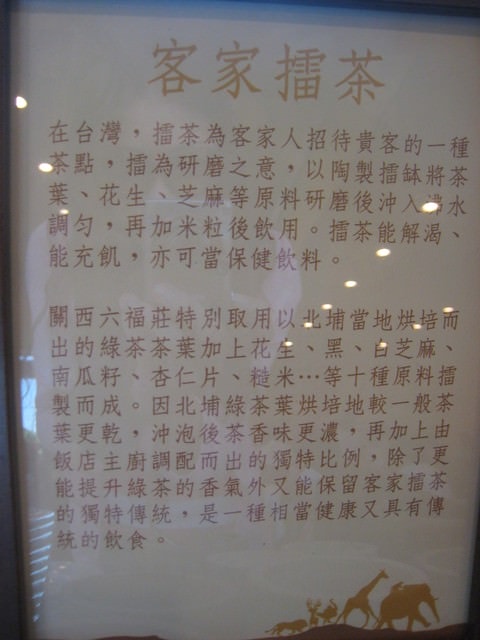 客家擂茶
在台灣，擂茶為客家人招待貴客的一種
茶點，擂為研磨之意，以陶製擂缽將茶
葉、花生、芝麻等原料研磨後沖入沸水
調勻，再加米粒後飲用。擂茶能解渴、
能充飢，亦可當保健飲料。
關西六福莊特別取用以北埔當地烘培而
出的綠茶茶葉加上花生、黑、白芝麻、
南瓜籽、杏仁片、糙米…等十種原料擂
製而成。因北埔綠茶葉烘培地較一般茶
葉更乾，沖泡後茶香味更濃，再加上由
飯店主廚調配而出的獨特比例，除了更
能提升綠茶的香氣外又能保留客家擂茶
的獨特傳統，是一種相當健康又具有傳
統的飲食。